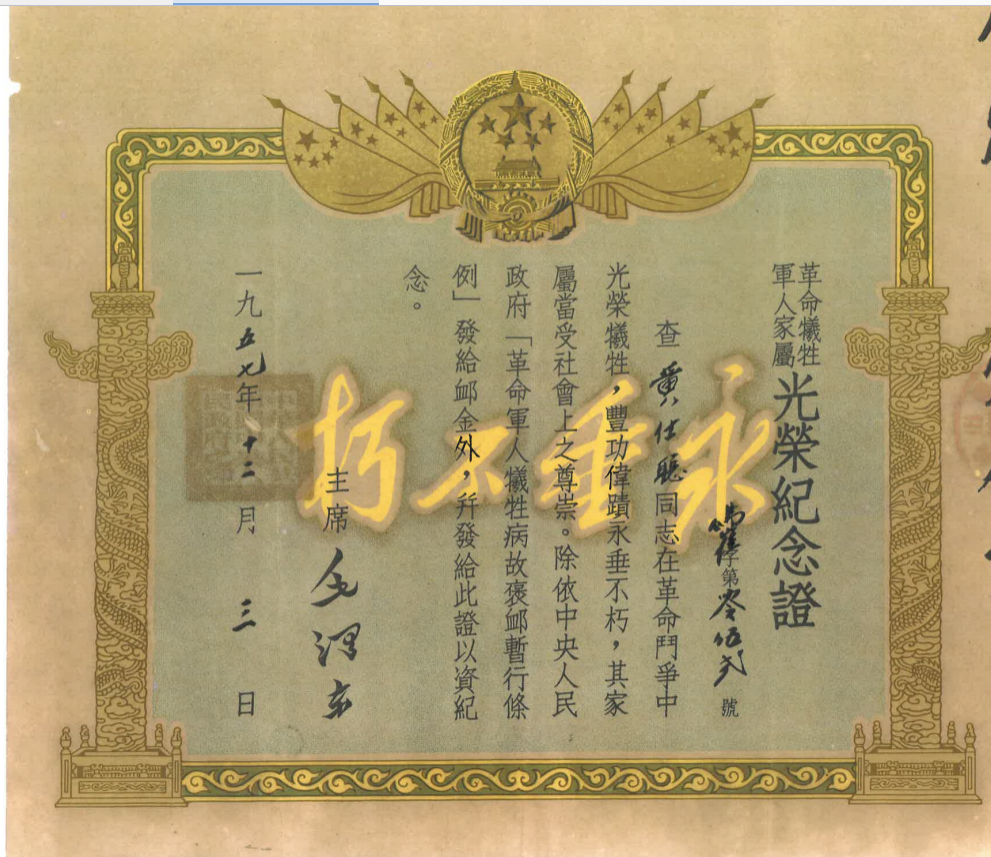 革命犧牲
軍人家屬
光榮紀念證
字第零伍弍號
查黃仕聰同志在革命鬥爭中
光榮犧牲，豐功偉蹟永垂不朽，其家
屬當受社會上之尊崇。除依中央人民
政府「革命軍人犧牲病故褒卹暫行條
例」發給卹金外，幷發給此證以資紀
念。
主席 毛澤東
一九五七年十二月三日
永垂不朽